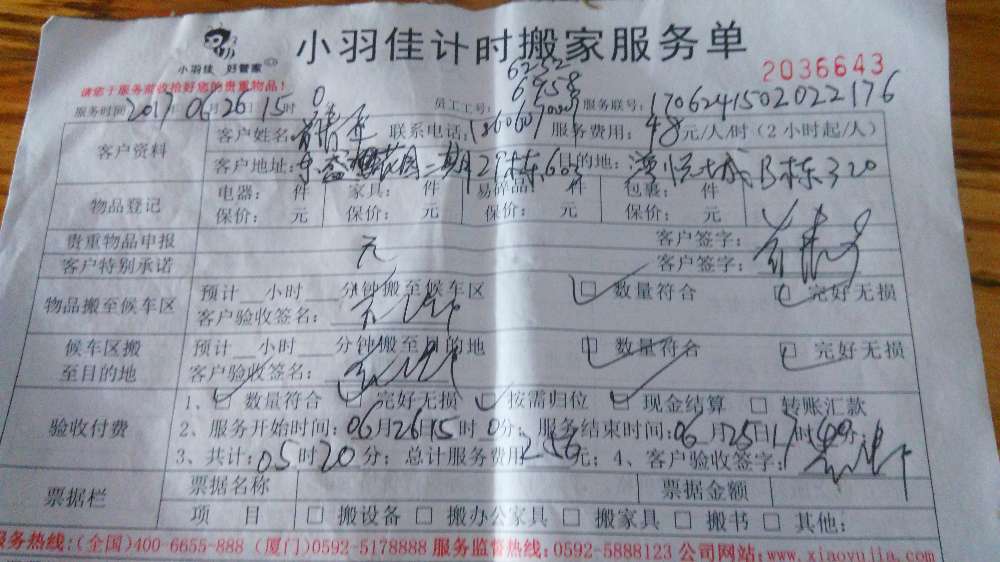 小羽佳 好管家
小羽佳计时搬家服务单
2036643
请您于服务前收拾好您的贵重物品！
6232
6958
服务时间：2017年06月26日15时0
员工工号：
服务联号：1706241502022176
客户资料
客户姓名： 联系电话： 服务费用：48元/人/时（2小时起/人）
客户地址： 二期29栋603 目的地： 悦城B栋320
物品登记
电器： 件 家具： 件 易碎品 件 包裹： 件
保价： 元 保价： 元 保价： 元 保价： 元
贵重物品申报 无 客户签字：
客户特别承诺 客户签字：
物品搬至候车区
预计__小时___分钟搬至候车区 ☑ 数量符合 ☑ 完好无损
客户验收签名：
候车区搬至目的地
预计__小时___分钟搬至目的地 ☑ 数量符合 ☑ 完好无损
客户验收签名：
验收付费
1、☑ 数量符合 ☑ 完好无损 ☑ 按需归位 ☑ 现金结算 □ 转账汇款
2、服务开始时间：06月26日15时0分；服务结束时间：06月25日17时40分
3、共计：05时20分；总计服务费用256元；4、客户验收签字：
票据栏
票据名称 票据金额
项 目 □ 搬设备 □ 搬办公家具 □ 搬家具 □ 搬书 □ 其他：
服务热线：(全国)400-6655-888 (厦门)0592-5178888 服务监督热线：0592-5888123 公司网站：www.xiaoyujia.com